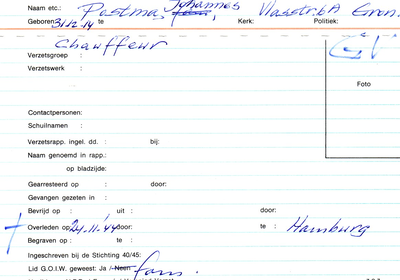 Naam etc.: Postma, Johannes, Vlasstr. 6A Gron.
Geboren: 31.12.14 te Kerk: Politiek:
Chauffeur
Verzetsgroep :
Verzetswerk :
Foto
Contactpersonen:
Schuilnamen :
Verzetsrapp. ingel. dd. : bij:
Naam genoemd in rapp.:
op bladzijde:
Gearresteerd op : door:
Gevangen gezeten in :
Bevrijd op : uit : door:
Overleden op 24.11.'44 door: te : Hamburg
Begraven op : te :
Ingeschreven bij de Stichting 40/45:
Lid G.O.I.W. geweest: Ja / Neen fam.